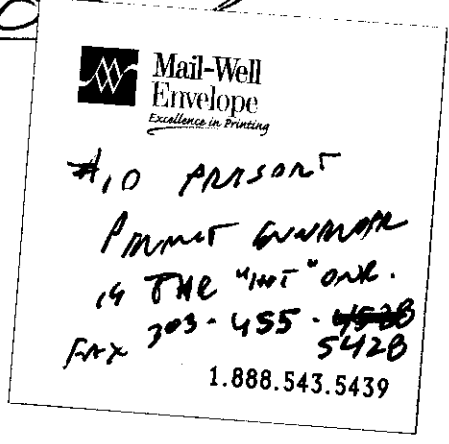 Mail-Well
Envelope
Excellence in Printing
#10 PRESORT
PERMIT ENVELOPE
is THE "HOT" ONE.
FAX 303-455-4538
5428
1.888.543.5439